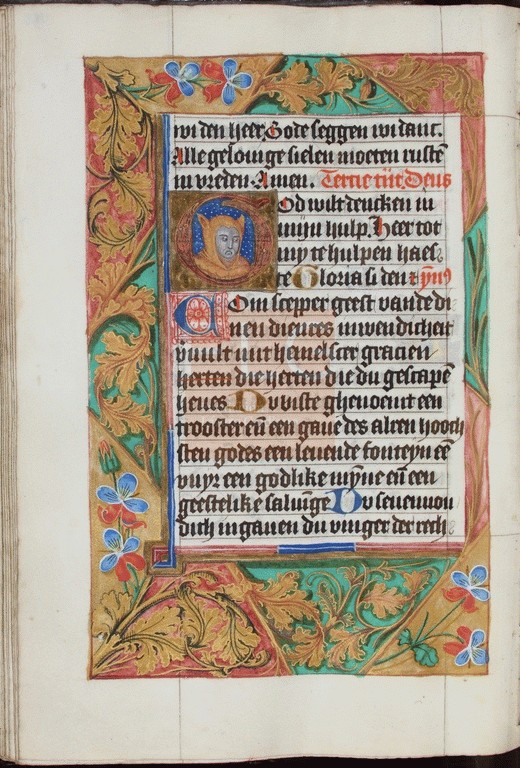 wi den heer Gode seggen wi danc.
Alle gelouige sielen moeten rustē
in vreden. Amen. Tercie tijt Deus
God wilt dencken in
mijn hulp. Heer tot
my te hulpen haes
te Gloria si den ymꝰ
Com scepper geest vande di
nen dienres inwendicheit
vuult mit hemelscer gracien
herten die herten die du gescapē
heues Du biste ghenoemt een
trooster eñ een gaue des alren hooch
sten godes een leuende fonteyn eē
vuyr een godlike mȳne eñ een
geestelike saluīge Du seuenuou
dich in gauen du vinger der rech